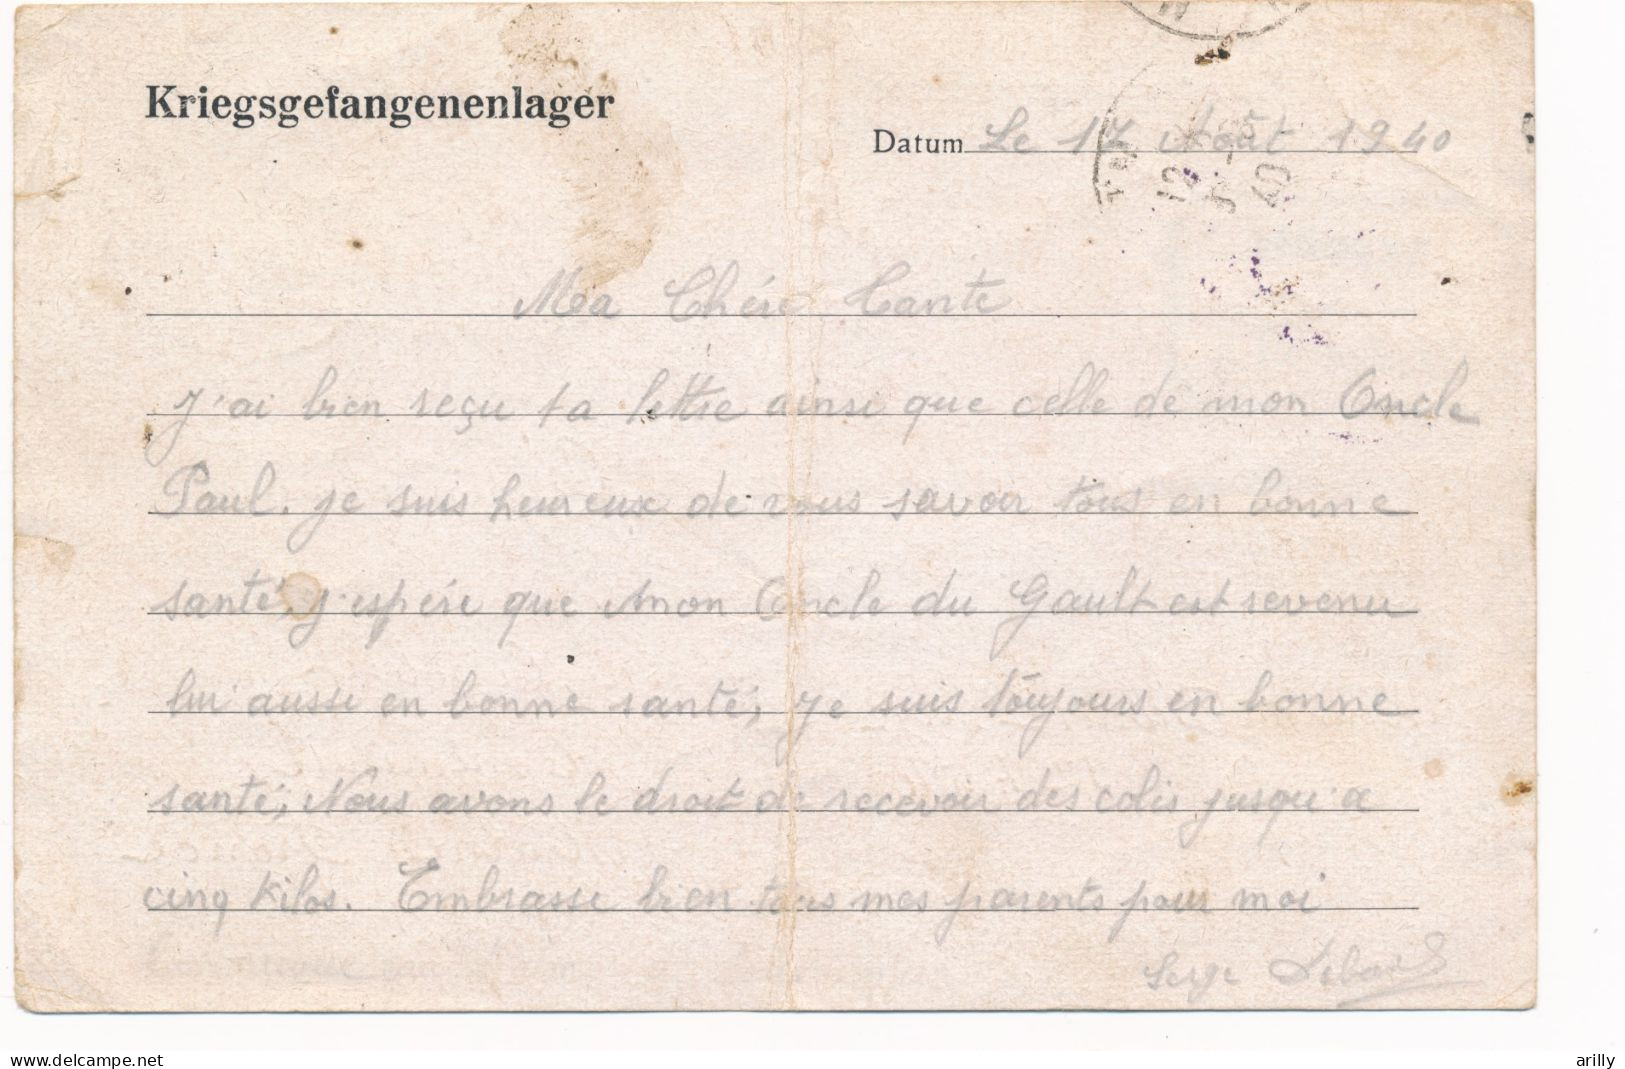 Kriegsgefangenenlager
Datum Le 17 Août 1940
12
40
Ma Chère Tante
J'ai bien reçu ta lettre ainsi que celle de mon Oncle
Paul. je suis heureux de vous savoir tous en bonne
santé, j'espère que mon Oncle du Gault est revenu
lui aussi en bonne santé, je suis toujours en bonne
santé, Nous avons le droit de recevoir des colis jusqu'a
cinq kilos. Embrasse bien tous mes parents pour moi
Serge
delcampe.net
arilly